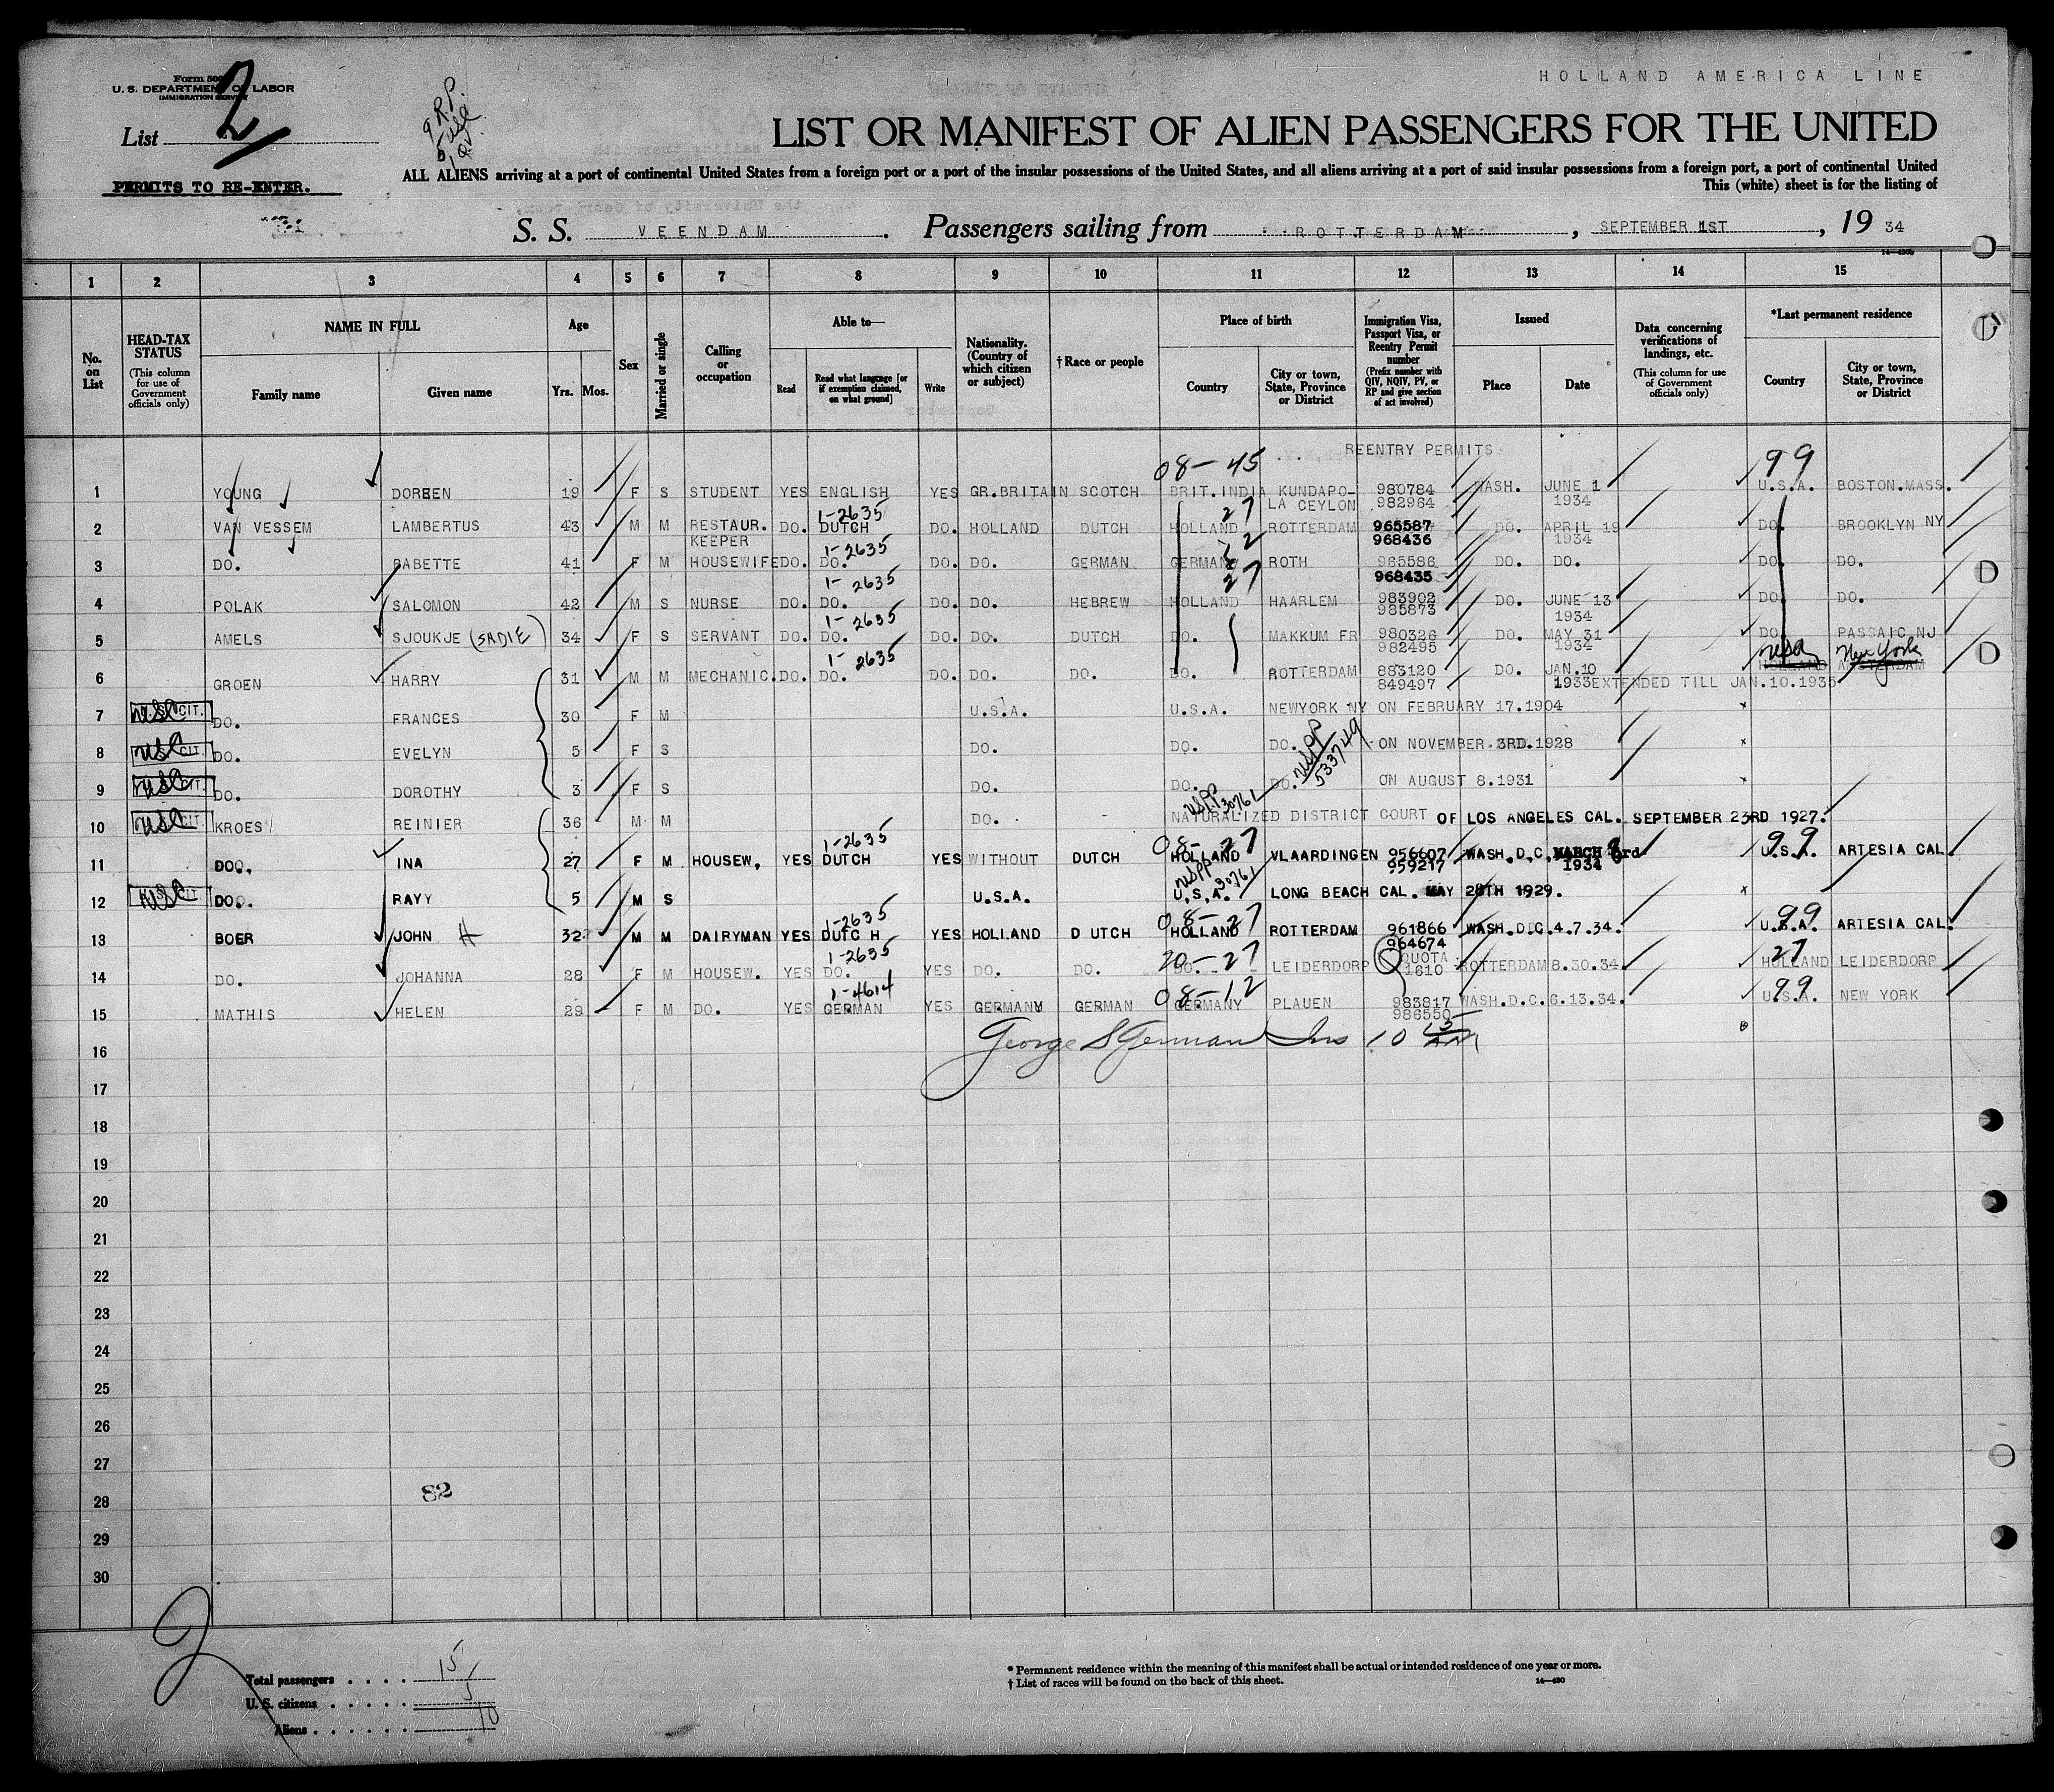 HOLLAND AMERICA LINE
Form 500
U. S. DEPARTMENT OF LABOR
IMMIGRATION SERVICE
List 2
9 R.P.
5 USC
1 QV.
LIST OR MANIFEST OF ALIEN PASSENGERS FOR THE UNITED
PERMITS TO RE-ENTER.
ALL ALIENS arriving at a port of continental United States from a foreign port or a port of the insular possessions of the United States, and all aliens arriving at a port of said insular possessions from a foreign port, a port of continental United
This (white) sheet is for the listing of
S. S. VEENDAM. Passengers sailing from ROTTERDAM, SEPTEMBER 1ST, 19 34
1 2 3 4 5 6 7 8 9 10 11 12 13 14 15
No. on List
HEAD-TAX STATUS (This column for use of Government officials only)
NAME IN FULL
Family name Given name
Age
Yrs. Mos.
Sex
Married or single
Calling or occupation
Able to—
Read Read what language [or if exemption claimed, on what ground] Write
Nationality. (Country of which citizen or subject)
† Race or people
Place of birth
Country City or town, State, Province or District
Immigration Visa, Passport Visa, or Reentry Permit number (Prefix number with QIV, NQIV, PV, or RP and give section of act involved)
Issued
Place Date
Data concerning verifications of landings, etc. (This column for use of Government officials only)
*Last permanent residence
Country City or town, State, Province or District
REENTRY PERMITS
08-45 99
1 YOUNG DOREEN 19 F S STUDENT YES ENGLISH YES GR.BRITAIN SCOTCH BRIT.INDIA KUNDAPO- 980784 WASH. JUNE 1 U.S.A. BOSTON.MASS.
LA CEYLON 982964 1934
1-2635 27
2 VAN VESSEM LAMBERTUS 43 M M RESTAUR. DO. DUTCH DO. HOLLAND DUTCH HOLLAND ROTTERDAM 965587 DO. APRIL 19 DO. BROOKLYN NY
KEEPER 968436 1934
1-2635
3 DO. BABETTE 41 F M HOUSEWIFE DO. DO. DO. DO. GERMAN GERMANY ROTH 965586 DO. DO. DO. DO.
968435
1-2635 27
4 POLAK SALOMON 42 M S NURSE DO. DO. DO. DO. HEBREW HOLLAND HAARLEM 983902 DO. JUNE 13 DO. DO.
985873 1934
1-2635
5 AMELS SJOUKJE (SADIE) 34 F S SERVANT DO. DO. DO. DO. DUTCH DO. MAKKUM FR 980326 DO. MAY 31 DO. PASSAIC NJ
982495 1934
1-2635 USA New York
6 GROEN HARRY 31 M M MECHANIC. DO. DO. DO. DO. DO. DO. ROTTERDAM 883120 DO. JAN.10 HOLLAND AMSTERDAM
849497 1933 EXTENDED TILL JAN.10.1935
7 USC CIT. DO. FRANCES 30 F M U.S.A. U.S.A. NEWYORK NY ON FEBRUARY 17.1904 x
8 USC CIT. DO. EVELYN 5 F S DO. DO. DO. ON NOVEMBER 3RD.1928 x
USPP 533749
9 USC CIT. DO. DOROTHY 3 F S DO. DO. DO. ON AUGUST 8.1931 x
USPP 30761
10 USC CIT. KROES REINIER 36 M M DO. NATURALIZED DISTRICT COURT OF LOS ANGELES CAL. SEPTEMBER 23RD 1927.
1-2635 08-27 99
11 DO. INA 27 F M HOUSEW, YES DUTCH YES WITHOUT DUTCH HOLLAND VLAARDINGEN 956607 WASH.D.C. MARCH 3rd U.S.A. ARTESIA CAL.
959217 1934
USPP 30761
12 USC CIT DO. RAYY 5 M S U.S.A. U.S.A. LONG BEACH CAL. MAY 28TH 1929. x
1-2635 08-27 99
13 BOER JOHN H 32 M M DAIRYMAN YES DUTC H YES HOLLAND D UTCH HOLLAND ROTTERDAM 961866 WASH.D.C.4.7.34. U.S.A. ARTESIA CAL.
964674
1-2635 20-27 27
14 DO. JOHANNA 28 F M HOUSEW. YES DO. YES DO. DO. DO. LEIDERDORP QUOTA 1610 ROTTERDAM 8.30.34. HOLLAND LEIDERDORP
1-4614 08-12 99
15 MATHIS HELEN 29 F M DO. YES GERMAN YES GERMANY GERMAN GERMANY PLAUEN 983817 WASH.D.C.6.13.34. U.S.A. NEW YORK
986550
16 George S German Ins 10 15 AM
17
18
19
20
21
22
23
24
25
26
27
28
29
30
82
2
Total passengers . . . . 15
U. S. citizens . . . . . 5
Aliens . . . . . . 10
* Permanent residence within the meaning of this manifest shall be actual or intended residence of one year or more.
† List of races will be found on the back of this sheet. 14—430